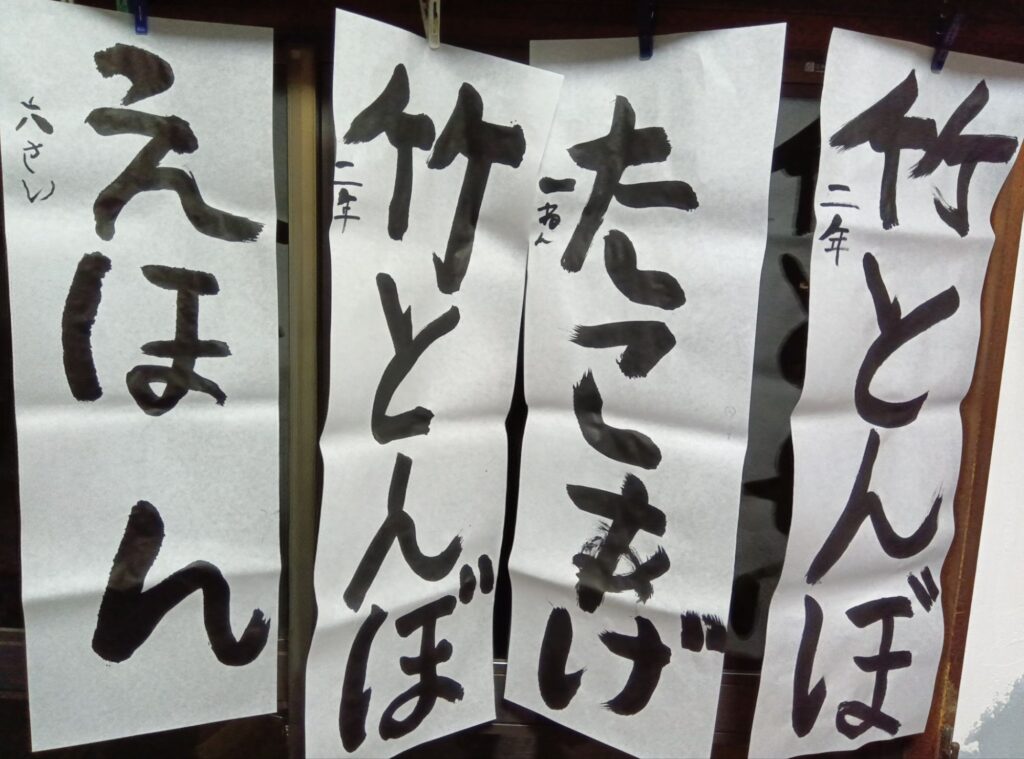 竹とんぼ
二年
たこあげ
一ねん
竹とんぼ
二年
えほん
六さい